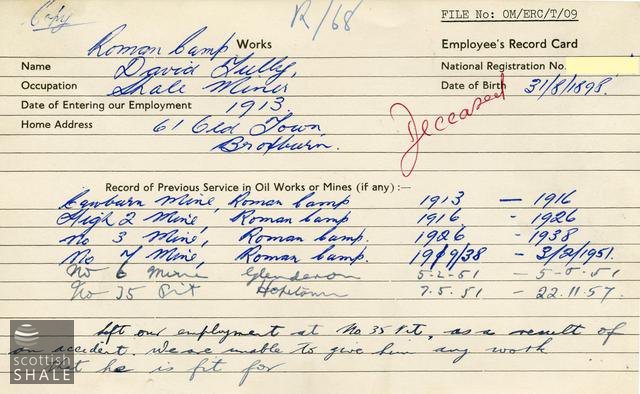 Copy
R/68
FILE No: OM/ERC/T/09
Roman Camp Works
Employee's Record Card
Name David Tully,
National Registration No.
Occupation Shale Miner
Date of Birth 31/8/1898.
Date of Entering our Employment 1913.
Deceased
Home Address 61 Old Town,
Broxburn.
Record of Previous Service in Oil Works or Mines (if any) :—
Cawburn Mine, Roman Camp 1913 — 1916
High 2 Mine, Roman Camp 1916 - 1926
No 3 Mine, Roman Camp. 1926 - 1938
No 7 Mine, Roman Camp. 19/9/38 - 3/2/1951.
No 6 Mine Glendevon 5-2-51 - 5-5-51
No 35 Pit Hopetoun 7.5.51 - 22.11.57.
Left our employment at No 35 Pit, as a result of
an accident. We are unable to give him any work
that he is fit for
scottish
SHALE